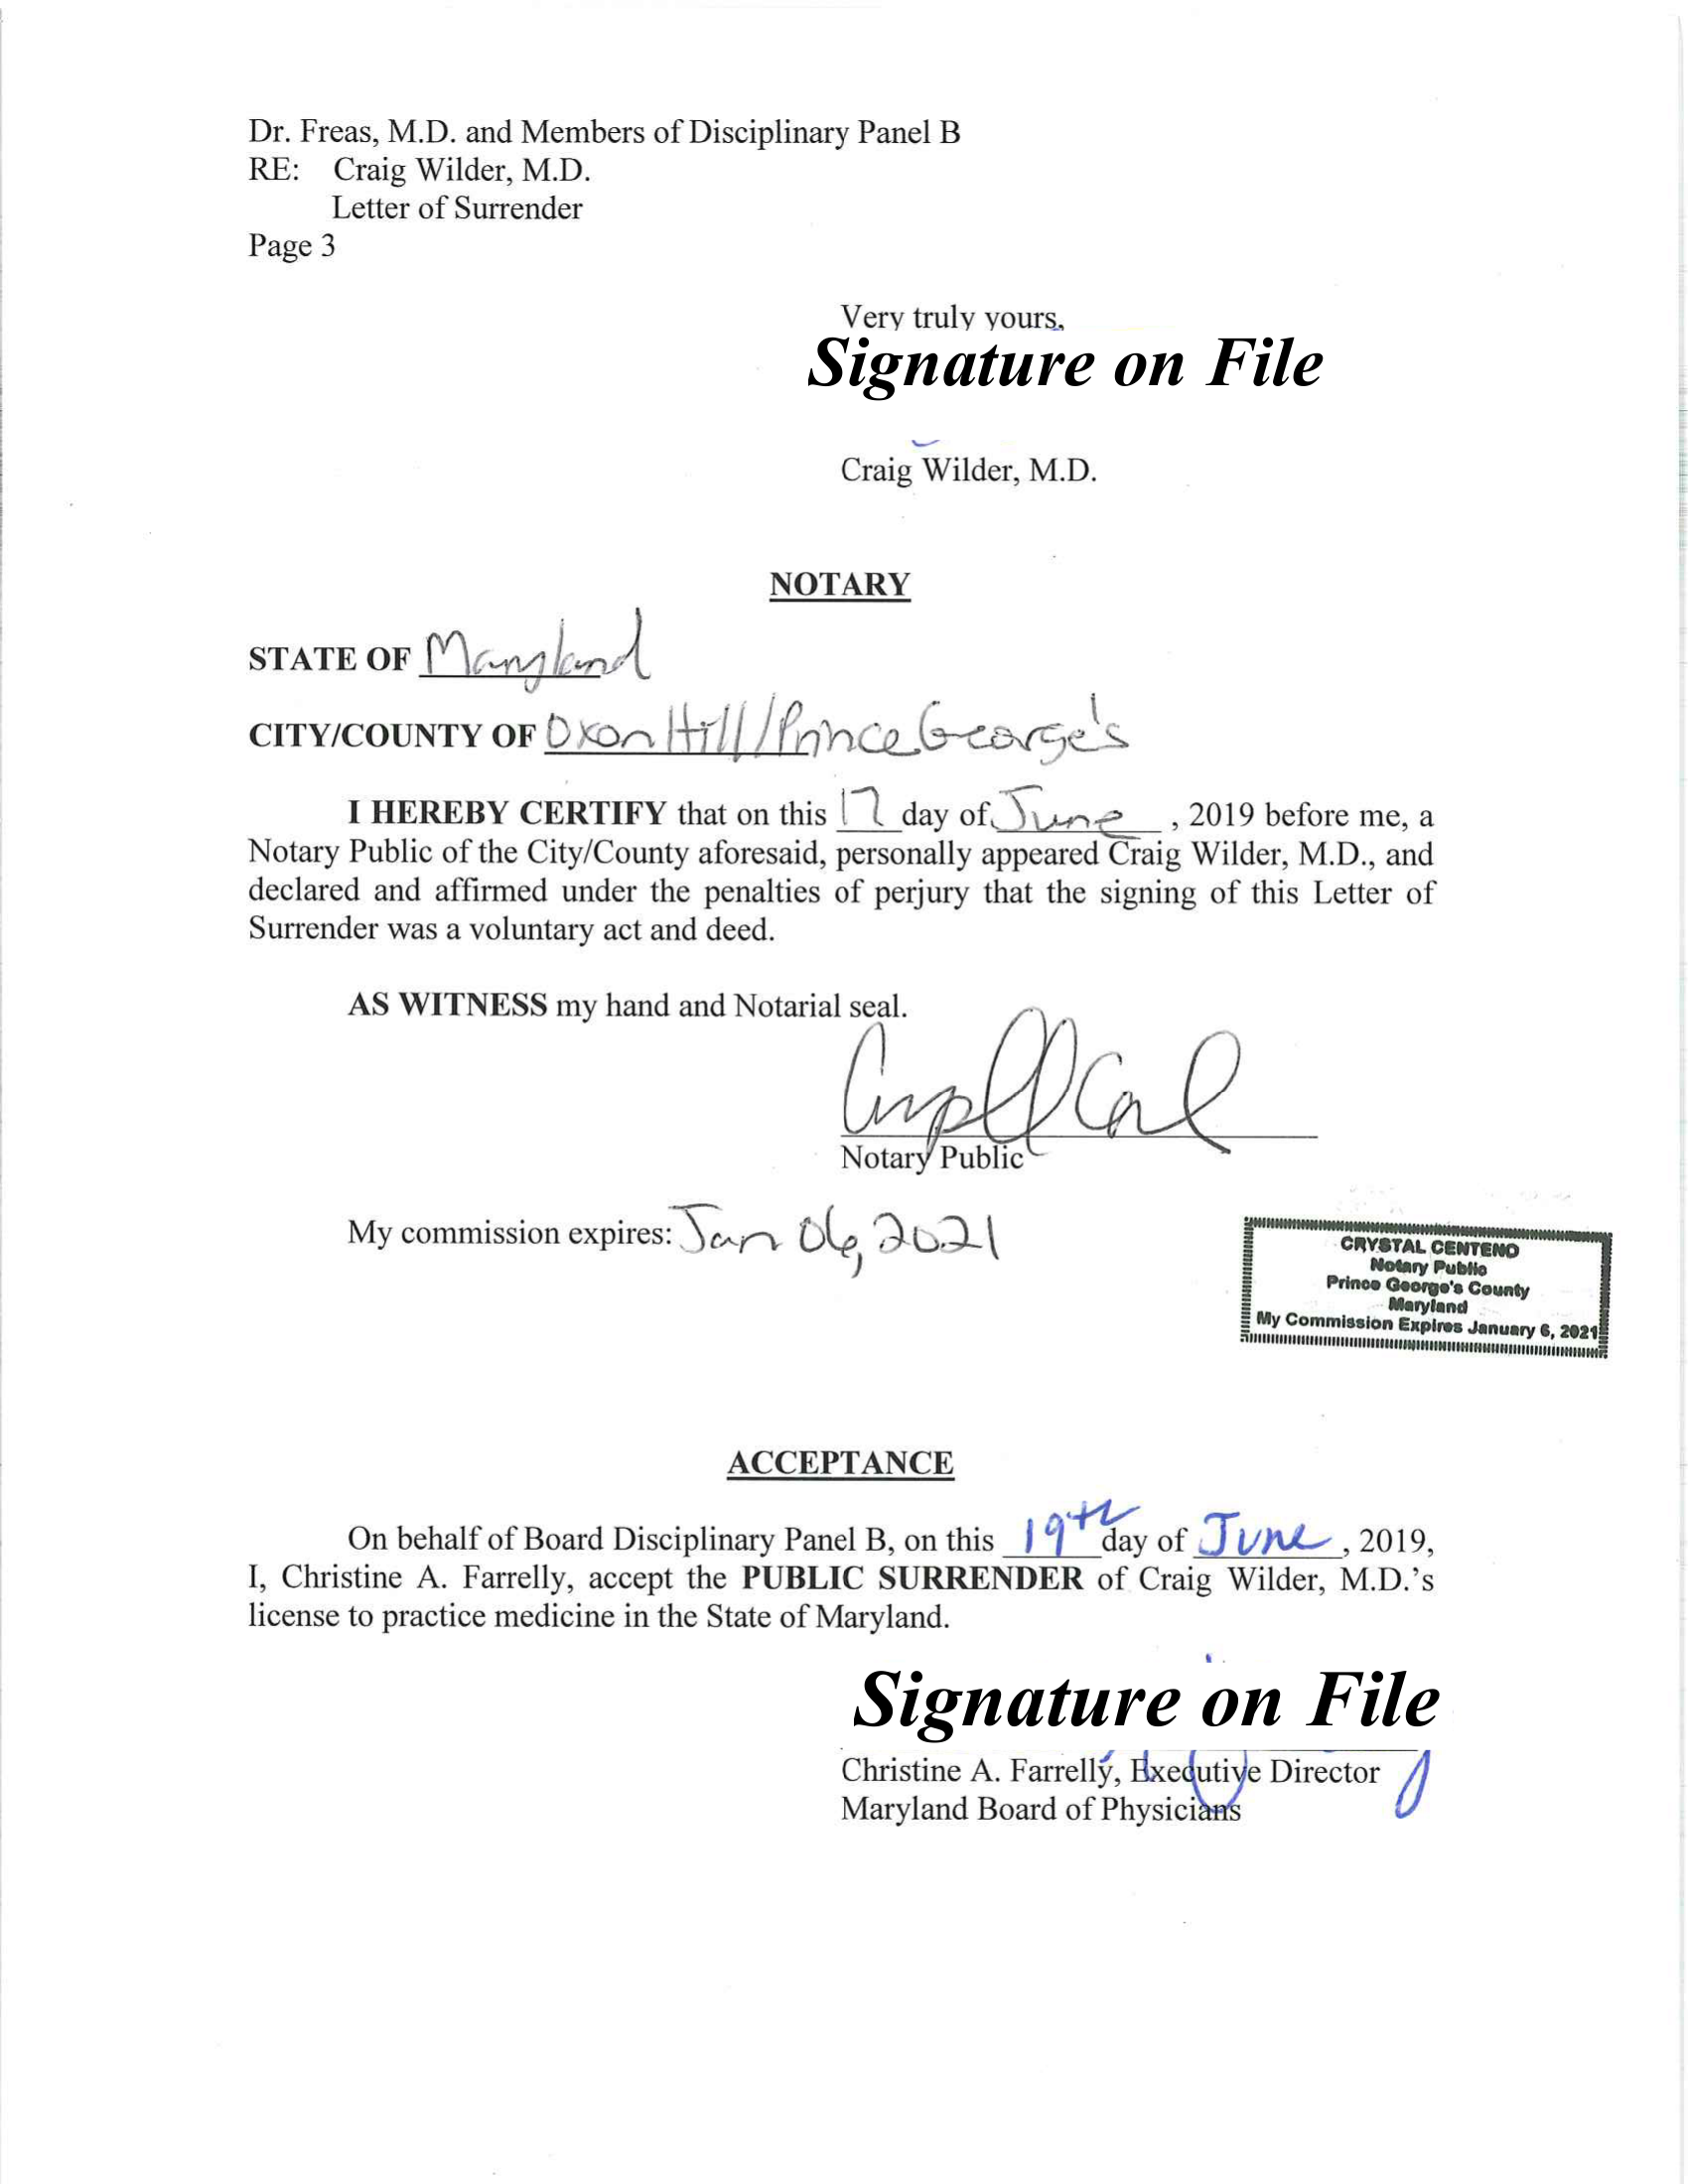 Dr. Freas, M.D. and Members of Disciplinary Panel B
RE: Craig Wilder, M.D.
Letter of Surrender
Page 3
Very truly yours,
Signature on File
Craig Wilder, M.D.
NOTARY
STATE OF Maryland
CITY/COUNTY OF Oxon Hill/Prince George's
I HEREBY CERTIFY that on this 17 day of June, 2019 before me, a
Notary Public of the City/County aforesaid, personally appeared Craig Wilder, M.D., and
declared and affirmed under the penalties of perjury that the signing of this Letter of
Surrender was a voluntary act and deed.
AS WITNESS my hand and Notarial seal.
Notary Public
My commission expires: Jan 06, 2021
CRYSTAL CENTENO
Notary Public
Prince George's County
Maryland
My Commission Expires January 6, 2021
ACCEPTANCE
On behalf of Board Disciplinary Panel B, on this 19th day of June, 2019,
I, Christine A. Farrelly, accept the PUBLIC SURRENDER of Craig Wilder, M.D.'s
license to practice medicine in the State of Maryland.
Signature on File
Christine A. Farrelly, Executive Director
Maryland Board of Physicians